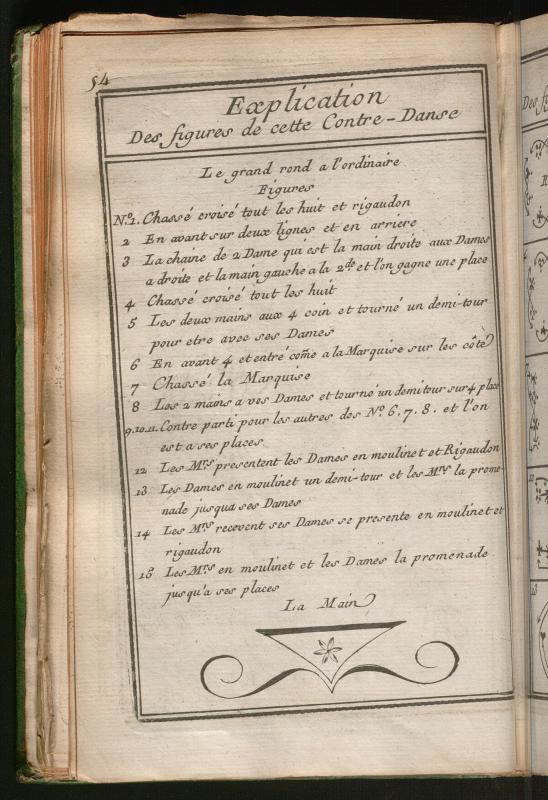 54
Explication
Des figures de cette Contre-Danse
Le grand rond a l'ordinaire
Figures
No. 1. Chassé croisé tout les huit et rigaudon
2 En avant sur deux lignes et en arriere
3 La chaine de 2 Dame qui est la main droite aux Dames
a droite et la main gauche a la 2de et l'on gagne une place
4 Chassé croisé tout les huit
5 Les deux mains aux 4 coin et tourné un demi-tour
pour etre avec ses Dames
6 En avant 4 et entré com̃e a la Marquise sur les côté
7 Chassé la Marquise
8 Les 2 mains a ves Dames et tourné un demi tour sur 4 place
9.10.11. Contre parti pour les autres des No. 6. 7. 8. et l'on
est a ses places
12 Les Mrs presentent les Dames en moulinet et Rigaudon
13 Les Dames en moulinet un demi-tour et les Mrs la prome-
nade jusqua ses Dames
14 Les Mrs recevent ses Dames se presente en moulinet et
rigaudon
15 Les Mrs en moulinet et les Dames la promenade
jusqu'a ses places
La Main
Des fi